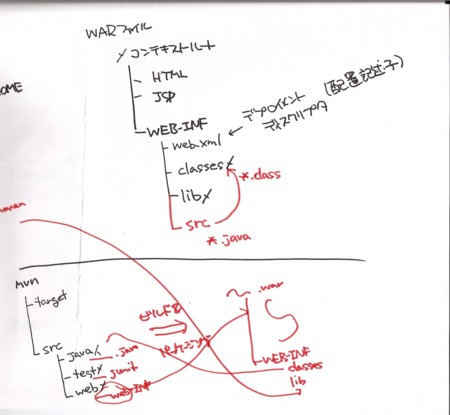 WARファイル
/コンテキストルート
HTML
JSP
WEB-INF
web.xml
デプロイメント
ディスクリプタ
(配置記述子)
classes/
*.class
lib/
src
*.java
mvn
target
src
java/ .java
test/ junit
web/
WEB-INF
ビルド&
パッケージング
～.war
WEB-INF
classes
lib